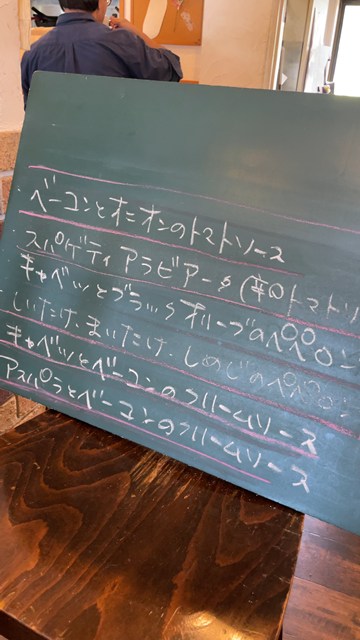 ベーコンとオニオンのトマトソース
スパゲティ アラビアータ (辛口トマトソ
キャベツとブラックオリーブのペペロン
しいたけ、まいたけ、しめじのペペロン
キャベツとベーコンのクリームソース
アスパラとベーコンのクリームソース